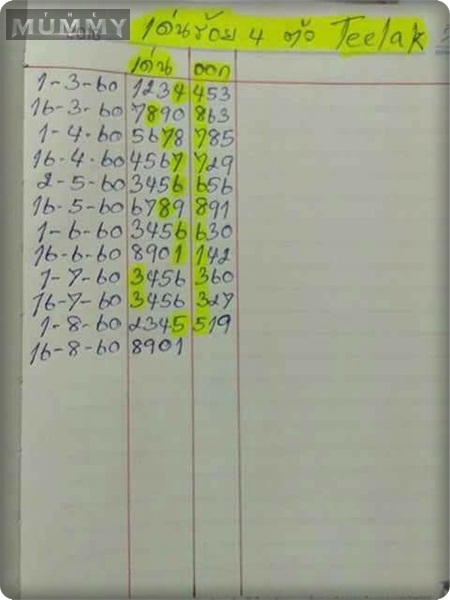 MUMMY
เด่นร้อย 4 ตัว Teelak
เด่น ออก
1-3-60 1234 453
16-3-60 7890 863
1-4-60 5678 785
16-4-60 4567 729
2-5-60 3456 656
16-5-60 6789 891
1-6-60 3456 630
16-6-60 8901 142
1-7-60 3456 360
16-7-60 3456 327
1-8-60 2345 519
16-8-60 8901